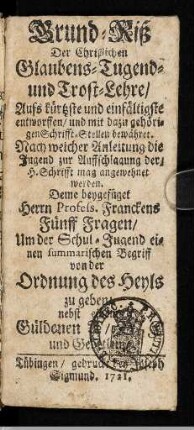 Grund-Riß
Der Christlichen
Glaubens-Tugend-
und Trost-Lehre/
Aufs kürtzste und einfältigste
entworffen/ und mit dazu gehöri-
gen Schrifft-Stellen bewähret.
Nach welcher Anleitung die
Jugend zur Auffschlagung der
H. Schrifft mag angewehnet
werden.
Deme beygefüget
Herrn Profess. Franckens
Fünff Fragen/
Um der Schul-Jugend ei-
nen summarischen Begriff
von der
Ordnung des Heyls
zu geben/
nebst
Güldenen
und
Tübingen/ gedruckt Joseph
Sigmund. 1721.